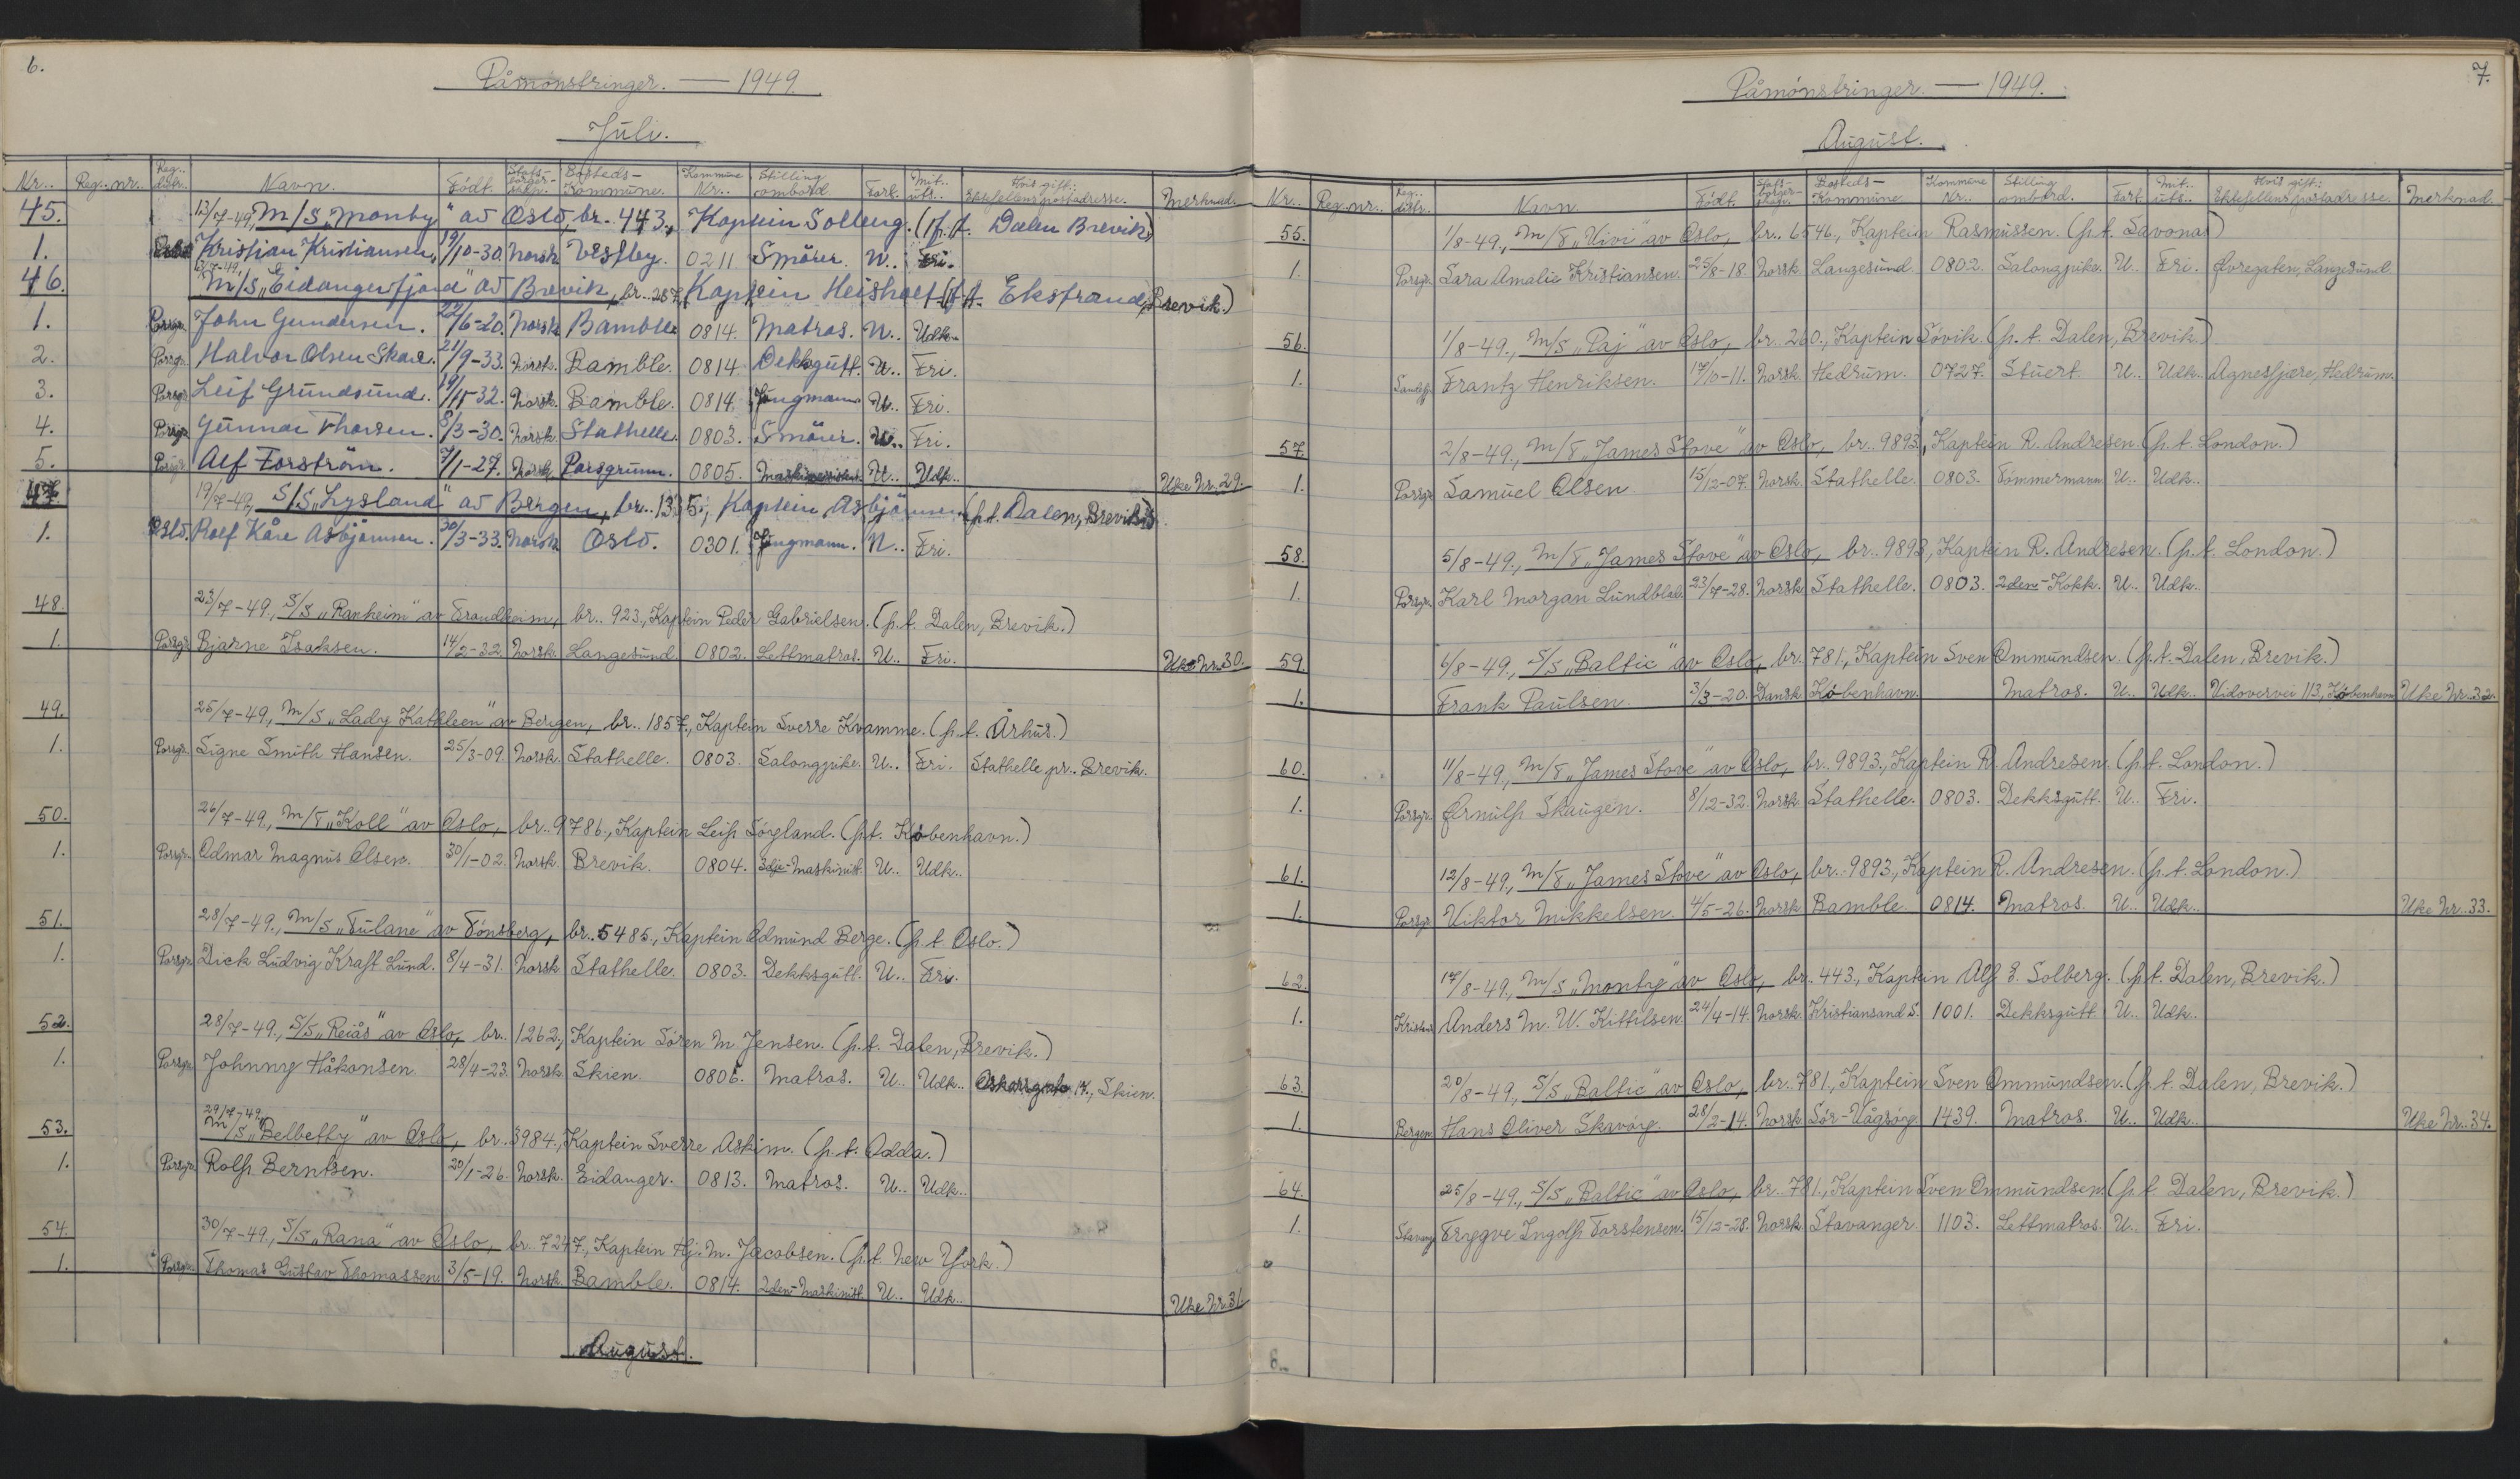 6.
Påmønstringer. — 1949.
Juli.
Nr.. Reg. nr.. Reg.. distr.. Navn. Født. Stats-borger-skap. Bosteds-Kommune. Kommune Nr.. Stilling ombord. Fart. Mit.. uts.. Hvis gift: Ektefellens postadresse. Merknad.
45. 13/7-49, M/S „Monty" av Oslo, br. 443., Kaptein Solberg. (p.t. Dalen Brevik)
1. Oslo Kristian Kristiansen, 19/10-30. Norsk Vestby. 0211 Smörer. N.. Fri.
46. M/S „Eidangerfjord" av Brevik, br.. 287, Kaptein Heisholt (p.t. Ekstrand, Brevik.)
1. Porsgr. John Gundersen. 22/6-20. Norsk Bamble 0814. Matros. N.. Udk..
2. Porsgr. Halvor Olsen Skare. 21/9-33. Norsk. Bamble. 0814 Dekksgutt. U.. Fri.
3. Porsgr. Leif Grundsund. 19/11-32. Norsk. Bamble. 0814. Jungmann U.. Fri.
4. Porsgr. Gunnar Thorsen. 8/3-30. Norsk. Stathelle. 0803. Smörer. U.. Fri.
5. Porsgr. Alf Forström. 7/1-27. Norsk. Porsgrunn. 0805. U.. Udk.. Uke Nr. 29.
47. 19/7-49, S/S „Lysland" av Bergen, br.. 1335., Kaptein Asbjörnsen (p.t. Dalen, Brevik)
1. Oslo. Rolf Kåre Asbjörnsen. 30/3-33. Norsk Oslo. 0301. Jungmann. N.. Fri.
48. 23/7-49., S/S „Ranheim" av Trondheim, br.. 923., Kaptein Peder Gabrielsen. (p.t. Dalen, Brevik.)
1. Porsgr. Bjarne Isaksen. 14/2-32. Norsk. Langesund. 0802. Lettmatros. U.. Fri. Uke Nr. 30.
49. 25/7-49, M/S „Lady Kathleen" av Bergen, br.. 1857., Kaptein Sverre Kvamme. (p.t. Århus.)
1. Porsgr. Signe Smith Hansen. 25/3-09. Norsk. Stathelle. 0803. Salongpike. U.. Fri. Stathelle pr.. Brevik.
50. 26/7-49., M/T „Koll" av Oslo, br.. 9786., Kaptein Leif Sörgland. (p.t. København.)
1. Porsgr. Odmar Magnus Olsen. 30/1-02. Norsk. Brevik. 0804. 3dje-Maskinist. U.. Udk..
51. 28/7-49., M/S „Tulane" av Tönsberg, br.. 5485., Kaptein Edmund Berge. (p.t Oslo.)
1. Porsgr. Dick Ludvig Kraft Lund. 8/4-31. Norsk Stathelle. 0803. Dekksgutt. U.. Fri.
52. 28/7-49., S/S „Reiås" av Oslo, br.. 1262., Kaptein Sören M. Jensen. (p.t. Dalen, Brevik.)
1. Porsgr. Johnny Håkonsen. 28/4-23. Norsk. Skien. 0806. Matros. U.. Udk.. Oskarsgate 14., Skien.
53. 29/7-49., M/S „Belbetty" av Oslo, br.. 3984., Kaptein Sverre Askim. (p.t. Odda.)
1. Porsgr. Rolf Berntsen. 20/1-26. Norsk. Eidanger. 0813. Matros. U.. Udk..
54. 30/7-49., S/S „Rana" av Oslo, br.. 7247., Kaptein Hj. M. Jacobsen. (p.t. New York.)
1. Porsgr. Thomas Gustav Thomassen. 3/5-19. Norsk. Bamble. 0814. 2den-Maskinist U.. Udk.. Uke Nr. 31.
August.
7.
Påmønstringer. — 1949.
August.
Nr.. Reg. nr.. Reg.. distr.. Navn. Født. Stats-borger-skap. Bosteds-Kommune. Kommune Nr.. Stilling ombord. Fart. Mit.. uts.. Hvis gift: Ektefellens postadresse. Merknad.
55. 1/8-49., M/T „Vivi" av Oslo, br.. 6546., Kaptein Rasmussen. (p.t. Savona)
1. Porsgr. Sara Amalie Kristiansen. 25/8-18. Norsk Langesund. 0802. Salongpike. U.. Fri. Øvregaten, Langesund.
56. 1/8-49., M/S „Paj" av Oslo, br.. 260., Kaptein Sövik. (p.t. Dalen, Brevik.)
1. Sandefj. Frantz Henriksen. 17/10-11. Norsk. Hedrum. 0727. Stuert. U.. Udk.. Agnesfjære, Hedrum.
57. 2/8-49., M/T „James Stove" av Oslo, br.. 9893, Kaptein R. Andresen (p.t. London.)
1. Porsgr. Samuel Olsen. 15/12-07. Norsk. Stathelle. 0803. Tömmermann U.. Udk..
58. 5/8-49., M/T „James Stove" av Oslo, br.. 9893, Kaptein R. Andresen. (p.t. London.)
1. Porsgr. Karl Morgan Lundblad. 23/7-28. Norsk Stathelle. 0803. 2den-Kokk. U.. Udk..
59. 6/8-49., S/S „Baltic" av Oslo, br. 781., Kaptein Sven Ommundsen. (p.t. Dalen, Brevik.)
1. Frank Paulsen. 3/3-20. Dansk. København. Matros. U.. Udk.. Vidovervei 113, København Uke Nr. 32.
60. 11/8-49., M/T „James Stove" av Oslo, br. 9893., Kaptein R. Andresen. (p.t. London.)
1. Porsgr. Ørnulf Skaugen. 8/12-32. Norsk. Stathelle. 0803. Dekksgutt. U.. Fri.
61. 12/8-49., M/T „James Stove" av Oslo, br.. 9893., Kaptein R. Andresen. (p.t. London.)
1. Porsgr. Viktor Mikkelsen. 4/5-26. Norsk. Bamble. 0814. Matros. U.. Udk.. Uke Nr. 33.
62. 17/8-49., M/S „Monty" av Oslo, br.. 443., Kaptein Alf E. Solberg. (p.t. Dalen, Brevik.)
1. Kristians. Anders M. W. Kittilsen. 24/4-14. Norsk. Kristiansand S. 1001. Dekksgutt. U.. Udk..
63. 20/8-49., S/S „Baltic" av Oslo, br.. 781., Kaptein Sven Ommundsen. (p.t. Dalen, Brevik.)
1. Bergen Hans Oliver Skavöy. 28/2-14. Norsk Sör-Vågsöy. 1439. Matros. U.. Udk.. Uke Nr. 34.
64. 25/8-49., S/S „Baltic" av Oslo, br. 781., Kaptein Sven Ommundsen. (p.t. Dalen, Brevik.)
1. Stavang. Tryggve Ingolf Torstensen. 15/12-28. Norsk. Stavanger. 1103. Lettmatros. U.. Fri.